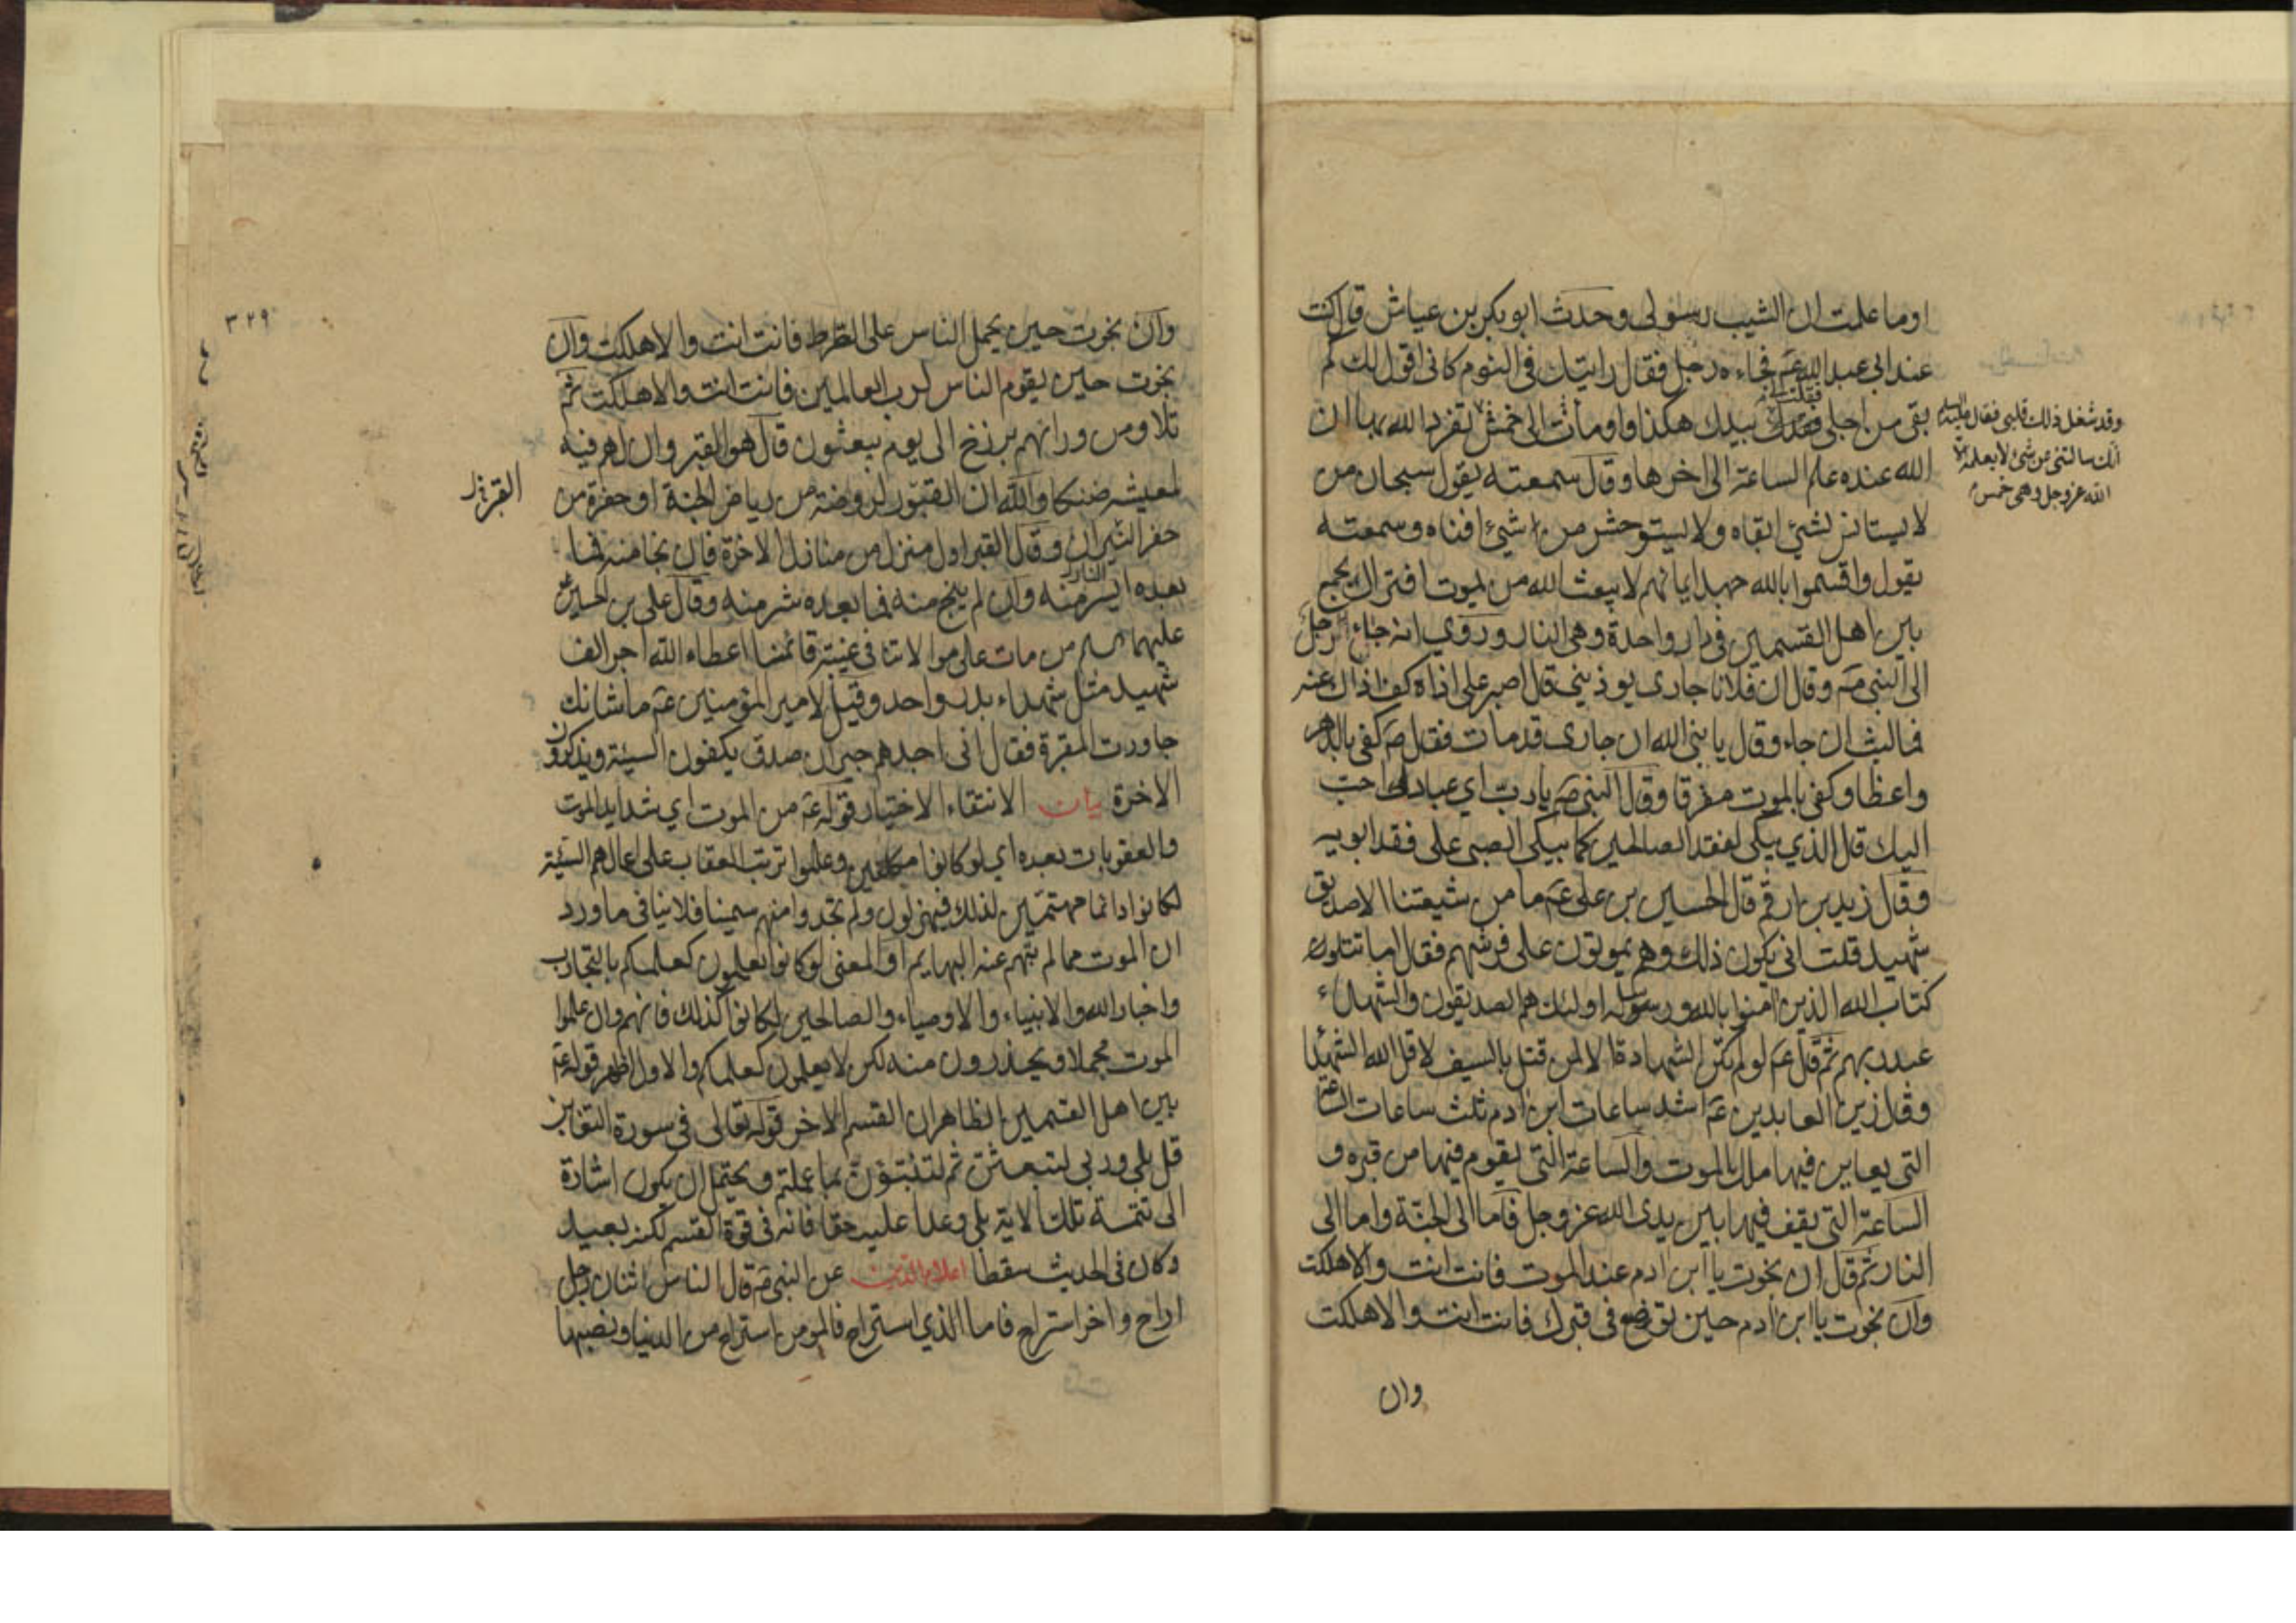 او ما علمت ان الشيب رسولى وحدث ابو بكر بن عياش قال كنت
عند ابى عبد الله عم فجاءه رجل فقال رايتك فى النوم كانى اقول لك كم
بقى من اجلى فقلت بيدك هكذا واومات الى خمس تفرد الله بها ان
وقد شغل ذلك قلبى فقال عليه السلم
انك سالتنى عن شئ لا يعلمه الا
الله عز وجل وهى خمس
الله عنده علم الساعة الى اخرها وقال سمعته يقول سبحان من
لا يستانس لشئ ابقاه ولا يستوحش من شئ افناه وسمعته
يقول واقسموا بالله جهد ايمانهم لا يبعث الله من يموت افترى ان يجمع
بين اهل القسمين فى دار واحدة وهى النار وروي انه جاء رجل
الى النبى ص وقال ان فلانا جارى يوذينى قال اصبر على اذاه كف اذاك عنه
فما لبث ان جاء وقال يا نبى الله ان جارى قد مات فقال ص كفى بالدهر
واعظا وكفى بالموت مفرقا وقال النبى ص يا رب اي عبادك احب
اليك قال الذي يبكى لفقد الصالحين كما يبكى الصبى على فقد ابويه
وقال زيد بن ارقم قال الحسين بن على عم ما من شيعتنا الا صديق
شهيد قلت انى يكون ذلك وهم يموتون على فرشهم فقال اما تتلون
كتاب الله الذين امنوا بالله ورسوله اولئك هم الصديقون والشهداء
عند ربهم ثم قال عم لو لم تكن الشهادة الا لمن قتل بالسيف لاقل الله الشهداء
وقال زين العابدين عم اشد ساعات ابن ادم ثلث ساعات الساعة
التى يعاين فيها ملك الموت والساعة التى يقوم فيها من قبره و
الساعة التى يقف فيها بين يدى الله عز وجل فاما الى الجنة واما الى
النار ثم قال ان نجوت يا ابن ادم عند الموت فانت انت والا هلكت
وان نجوت يا ابن ادم حين توضع فى قبرك فانت انت والا هلكت
وان
٣٢٩
وان نجوت حين يحمل الناس على الصراط فانت انت والا هلكت وان
نجوت حين يقوم الناس لرب العالمين فانت انت والا هلكت ثم
تلا ومن ورائهم برزخ الى يوم يبعثون قال هو القبر وان لهم فيه
لمعيشة ضنكا والله ان القبور لروضة من رياض الجنة او حفرة من
حفر النيران وقال القبر اول منزل من منازل الاخرة فان نجا منه فما
بعده ايسر منه وان لم ينج منه فما بعده شر منه وقال على بن الحسين
عليهما السلم من مات على موالاتنا فى غيبة قائمنا اعطاه الله اجر الف
شهيد مثل شهداء بدر واحد وقيل لامير المؤمنين عم ما شانك
جاورت المقبرة فقال انى اجدهم جيران صدق يكفون السيئة ويذكرون
الاخرة بيان الانتقاء الاختيار قوله عم من الموت اي شدايد الموت
والعقوبات بعده اي لو كانوا مكلفين وعلموا ترتب العقاب على اعمالهم السيئة
لكانوا دائما مهتمين لذلك فيهزلون ولم تجدوا منهم سمينا فلا ينافى ما ورد
ان الموت مما لم يتهم عنه البهايم او المعنى لو كانوا يعلمون كعلمكم بالتجارب
واخبار الله والانبياء والاوصياء والصالحين لكانوا كذلك فانهم وان علموا
الموت مجملا ويحذرون منه لكن لا يعلمون كعلمكم والاول اظهر قوله عم
بين اهل القسمين الظاهر ان القسم الاخر قوله تعالى فى سورة التغابن
قل بلى وربى لتبعثن ثم لتنبئون بما عملتم ويحتمل ان يكون اشارة
الى تتمة تلك الاية بلى وعدا عليه حقا فانه فى قوة القسم لكنه بعيد
وكان فى الحديث سقطا اعلام الدين عن النبى ص قال الناس اثنان رجل
اراح واخر استراح فاما الذي استراح فالمومن استراح من الدنيا ونصبها